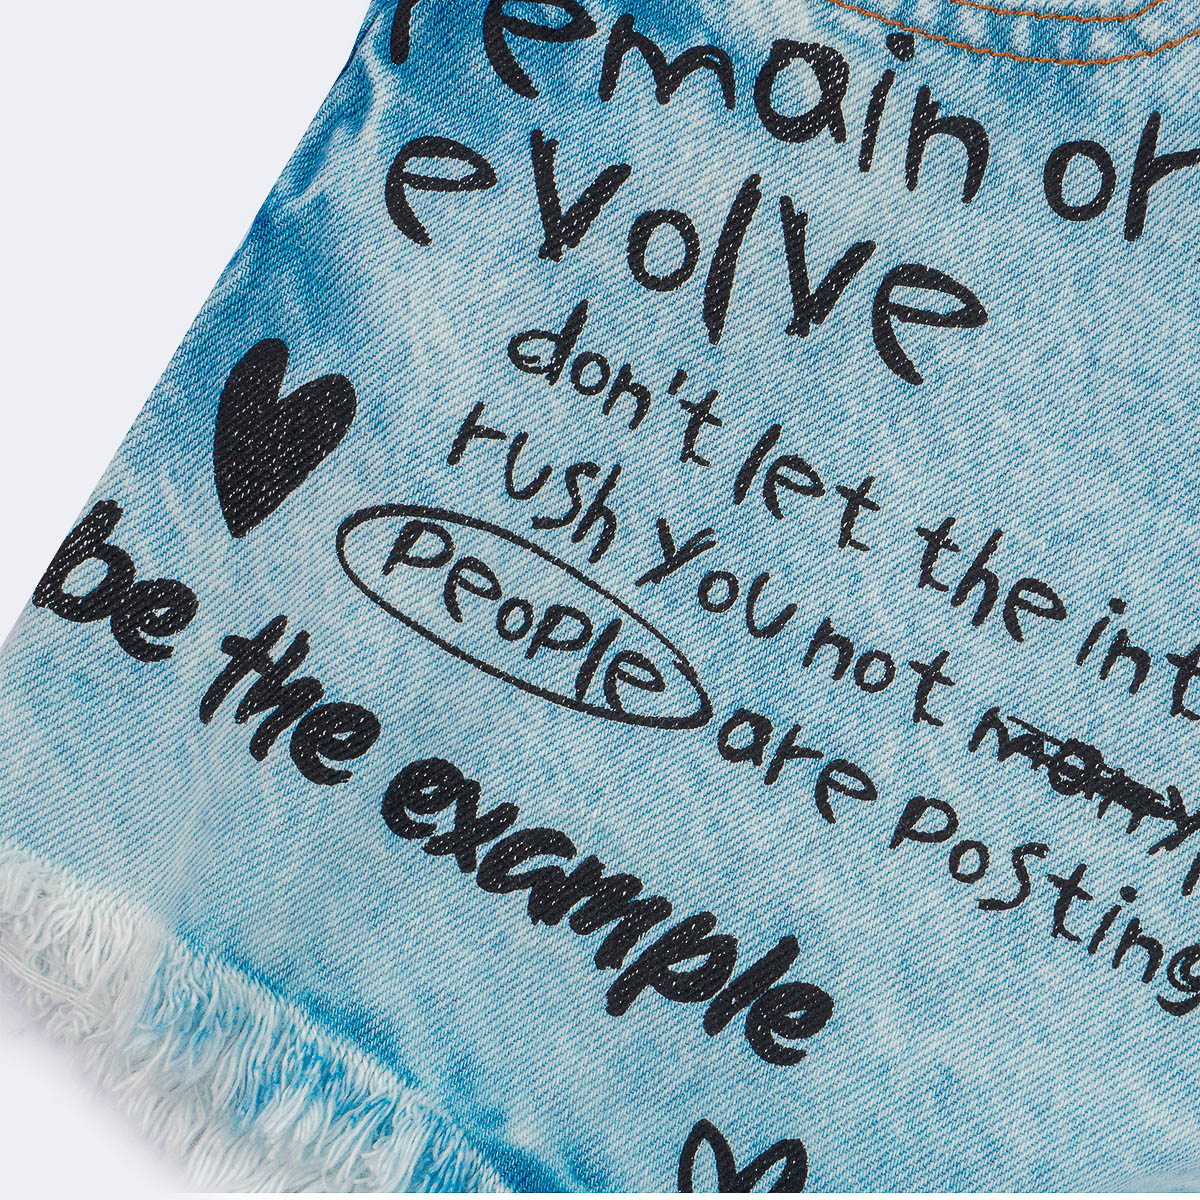 remain or
evolve
don't let the int
rush you not
people are posting
be the example